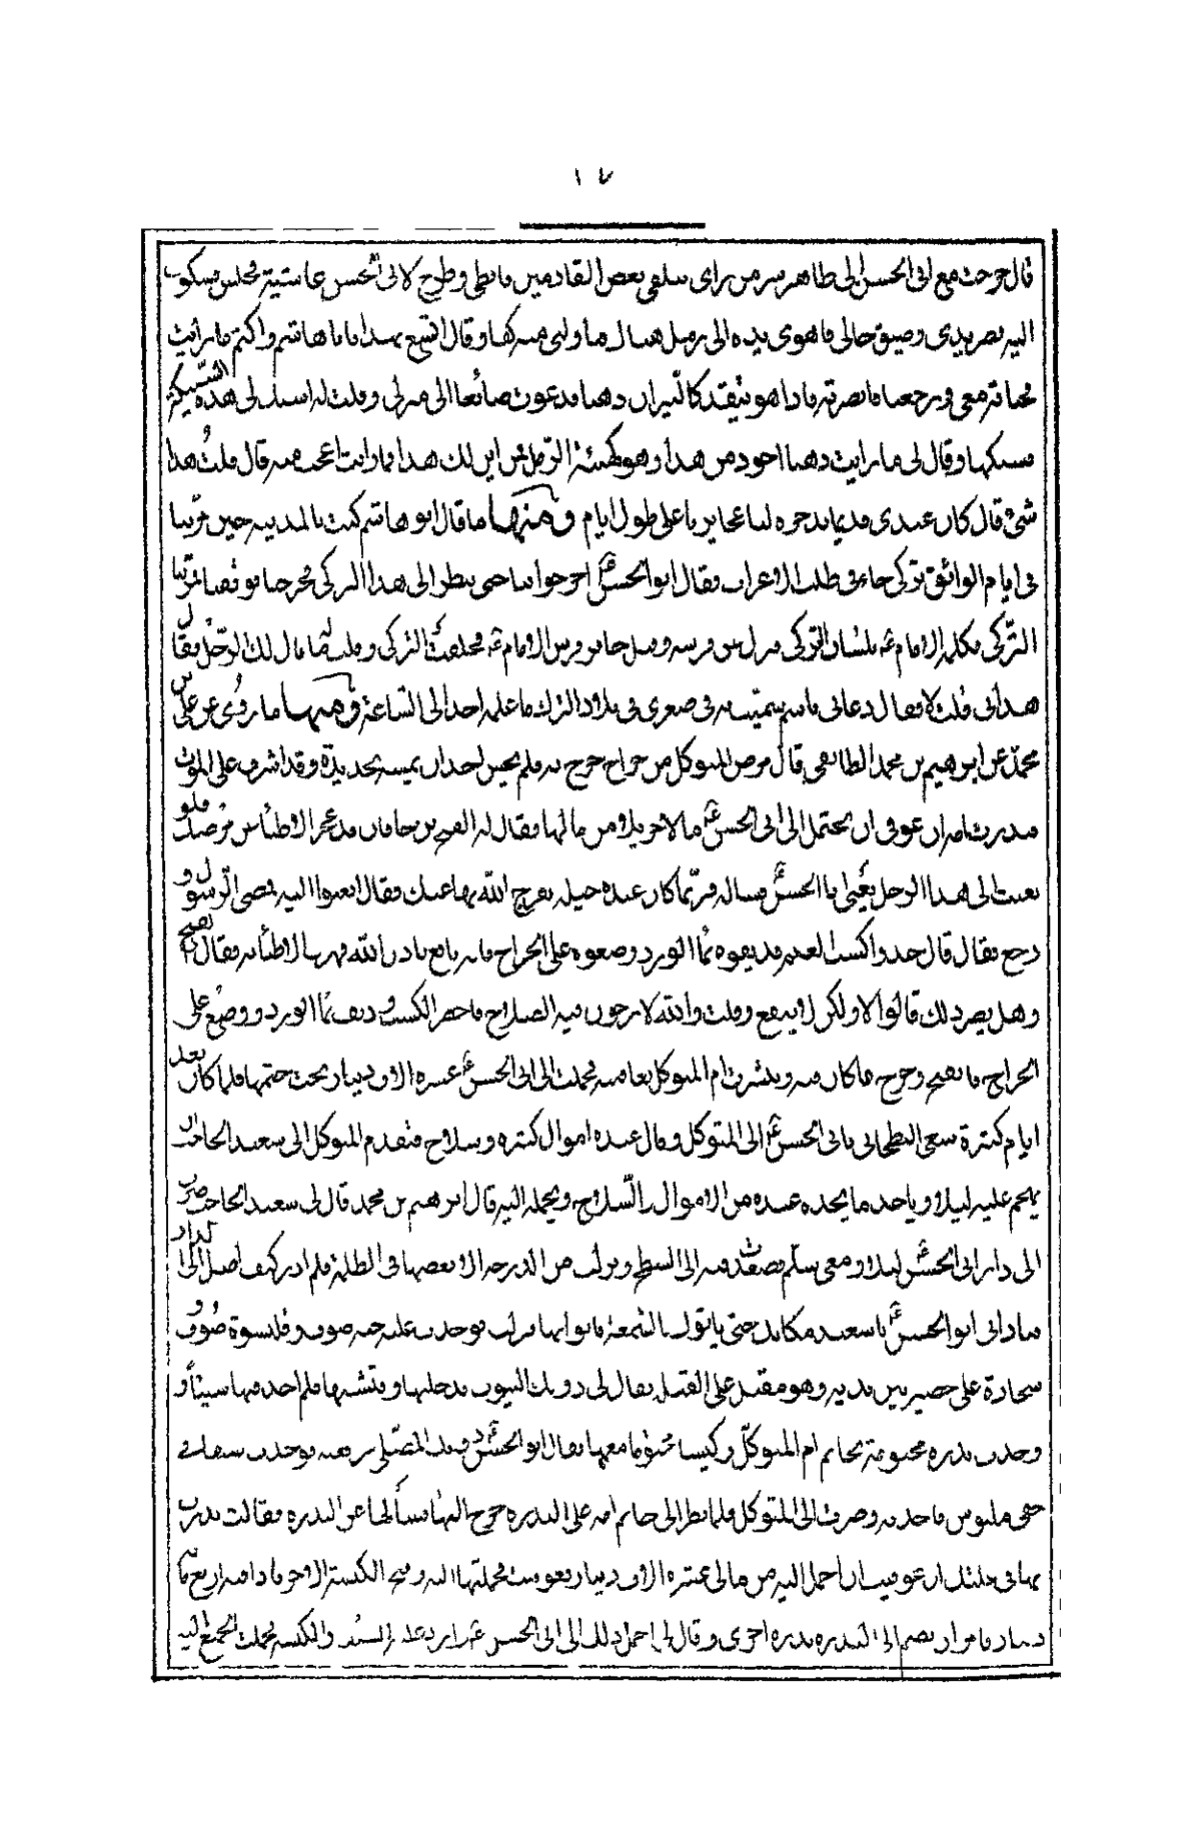 ١٧
قال خرجت مع ابى الحسن الى ظاهر سر من راى يتلقى بعض القادمين فابطى وطرح لابى الحسن غاشية فجلس فشكوت
اليه قصر يدى وضيق حالى فاهوى بيده الى رمل هناك فناولنى منه كفا وقال اتسع بهذا يا ابا هاشم واكتم ما رايت
فخباته معى ورجعنا فابصرته فاذا هو يتقد كالنيران ذهبا فدعوت صائغا الى منزلى وقلت له اسبك لى هذه السبيكة
فسبكها وقال لى ما رايت ذهبا اجود من هذا وهو كهيئة الرمل فمن اين لك هذا فما رايت اعجب منه قال قلت هذا
شئ قال كان عندى قديما تدخره لنا عجايزنا على طول ايام ومنها ما قال ابو هاشم كنت بالمدينه حين مر بنا
فى ايام الواثق تركى جاء فى طلب الاعراب فقال ابو الحسن ع اخرجوا بنا حتى ننظر الى هذا التركى فخرجنا فوقفنا فمر بنا
التركى فكلمه الامام ع بلسان التركى فنزل عن فرسه وقبل حافر فرس الامام ع فحلفت التركى وقلت له ما قال لك الرجل فقال
هذا نبى قلت لا فقال دعانى باسم سميت به فى صغرى فى بلاد الترك ما علمه احد الى الساعة ومنها ما روى عن على بن
محمد عن ابرهيم بن محمد الطائفى قال مرض المتوكل من خراج خرج به فلم يجسر احد ان يمسه بحديدة وقد اشرف على الموت
فنذرت امه ان عوفى ان يحتمل الى ابى الحسن ع مالا جزيلا من مالها فقال له الفتح بن خاقان قد عجز الاطباء من مرضك فلو
بعثت الى هذا الرجل يعنى ابا الحسن ع فساله فربما كان عنده حيله يفرج الله بها عنك فقال ابعثوا اليه فمضى الرسول و
رجع فقال قال خذوا كسب الغنم فديفوه بماء الورد وضعوه على الخراج فانه نافع باذن الله فهزء الاطباء به فقال الفتح
وهل يضر ذلك قالوا لا ولكن لا ينفع وقلت والله لارجون فيه الصلاح فاحضر الكسب وديف بماء الورد ووضع على
الخراج فانفتح وخرج ما كان فيه وبشرت ام المتوكل بعافيته فحملت الى ابى الحسن ع عشره الاف دينار تحت ختمها فلما كان بعد
ايام كثيرة سعى البطحانى بابى الحسن ع الى المتوكل وقال عنده اموال كثيره وسلاح فتقدم المتوكل الى سعيد الحاجب ان
يهجم عليه ليلا وياخذ ما يجده عنده من الاموال والسلاح ويحمله اليه قال ابرهيم بن محمد قال لى سعيد الحاجب صرت
الى دار ابى الحسن ع ليلا ومعى سلم فصعدت منه الى السطح ونزلت من الدرجه الى بعضها فى الظلمة فلم ادر كيف اصل الى الدار
فنادانى ابو الحسن ع يا سعيد مكانك حتى ياتوك بالشمعة فاتوا بها فنزلت فوجدت عليه جبه صوف وقلنسوة صوف و
سجادة على حصير بين يديه وهو مقبل على القبله فقال لى دونك البيوت فدخلتها وفتشتها فلم اجد فيها شيئا و
وجدت بدره مختومة بخاتم ام المتوكل وكيسا مختوما معها فقال ابو الحسن ع دونك المصلى فرفعته فوجدت سيفا فى
جفن ملبوس فاخذته وصرت الى المتوكل فلما نظر الى خاتم امه على البدره خرج اليها فسألها عن البدره فقالت نذرت
بها فى علتك ان عوفيت ان احمل اليه من مالى عشره الاف دينار فعوفيت فحملتها اليه وفتح الكيس الاخر فاذا فيه اربع مائه
دينار فامر ان يضم الى البدره بدره اخرى وقال لى احمل ذلك الى ابى الحسن ع واردد عليه السيف والكيس فحملت الجميع اليه